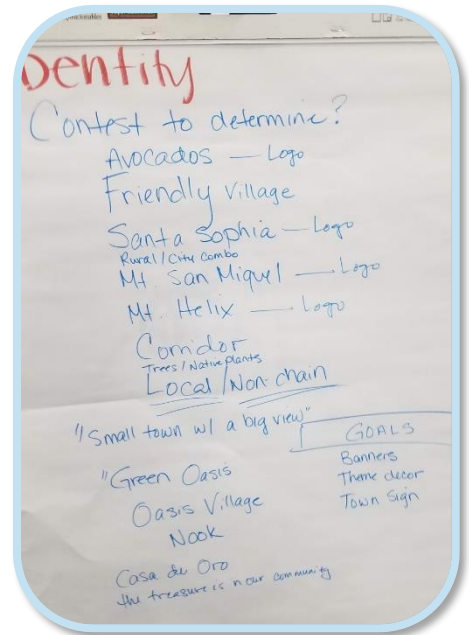 Dentity
Contest to determine?
Avocados — Logo
Friendly Village
Santa Sophia — Logo
Rural/City Combo
Mt San Miquel — Logo
Mt. Helix — Logo
Corridor
Trees/Native plants
Local/Non-chain
"Small town w/ a big view"
GOALS
Banners
Theme decor
Town Sign
"Green Oasis
Oasis Village
Nook
Casa de Oro
the treasure is n our community